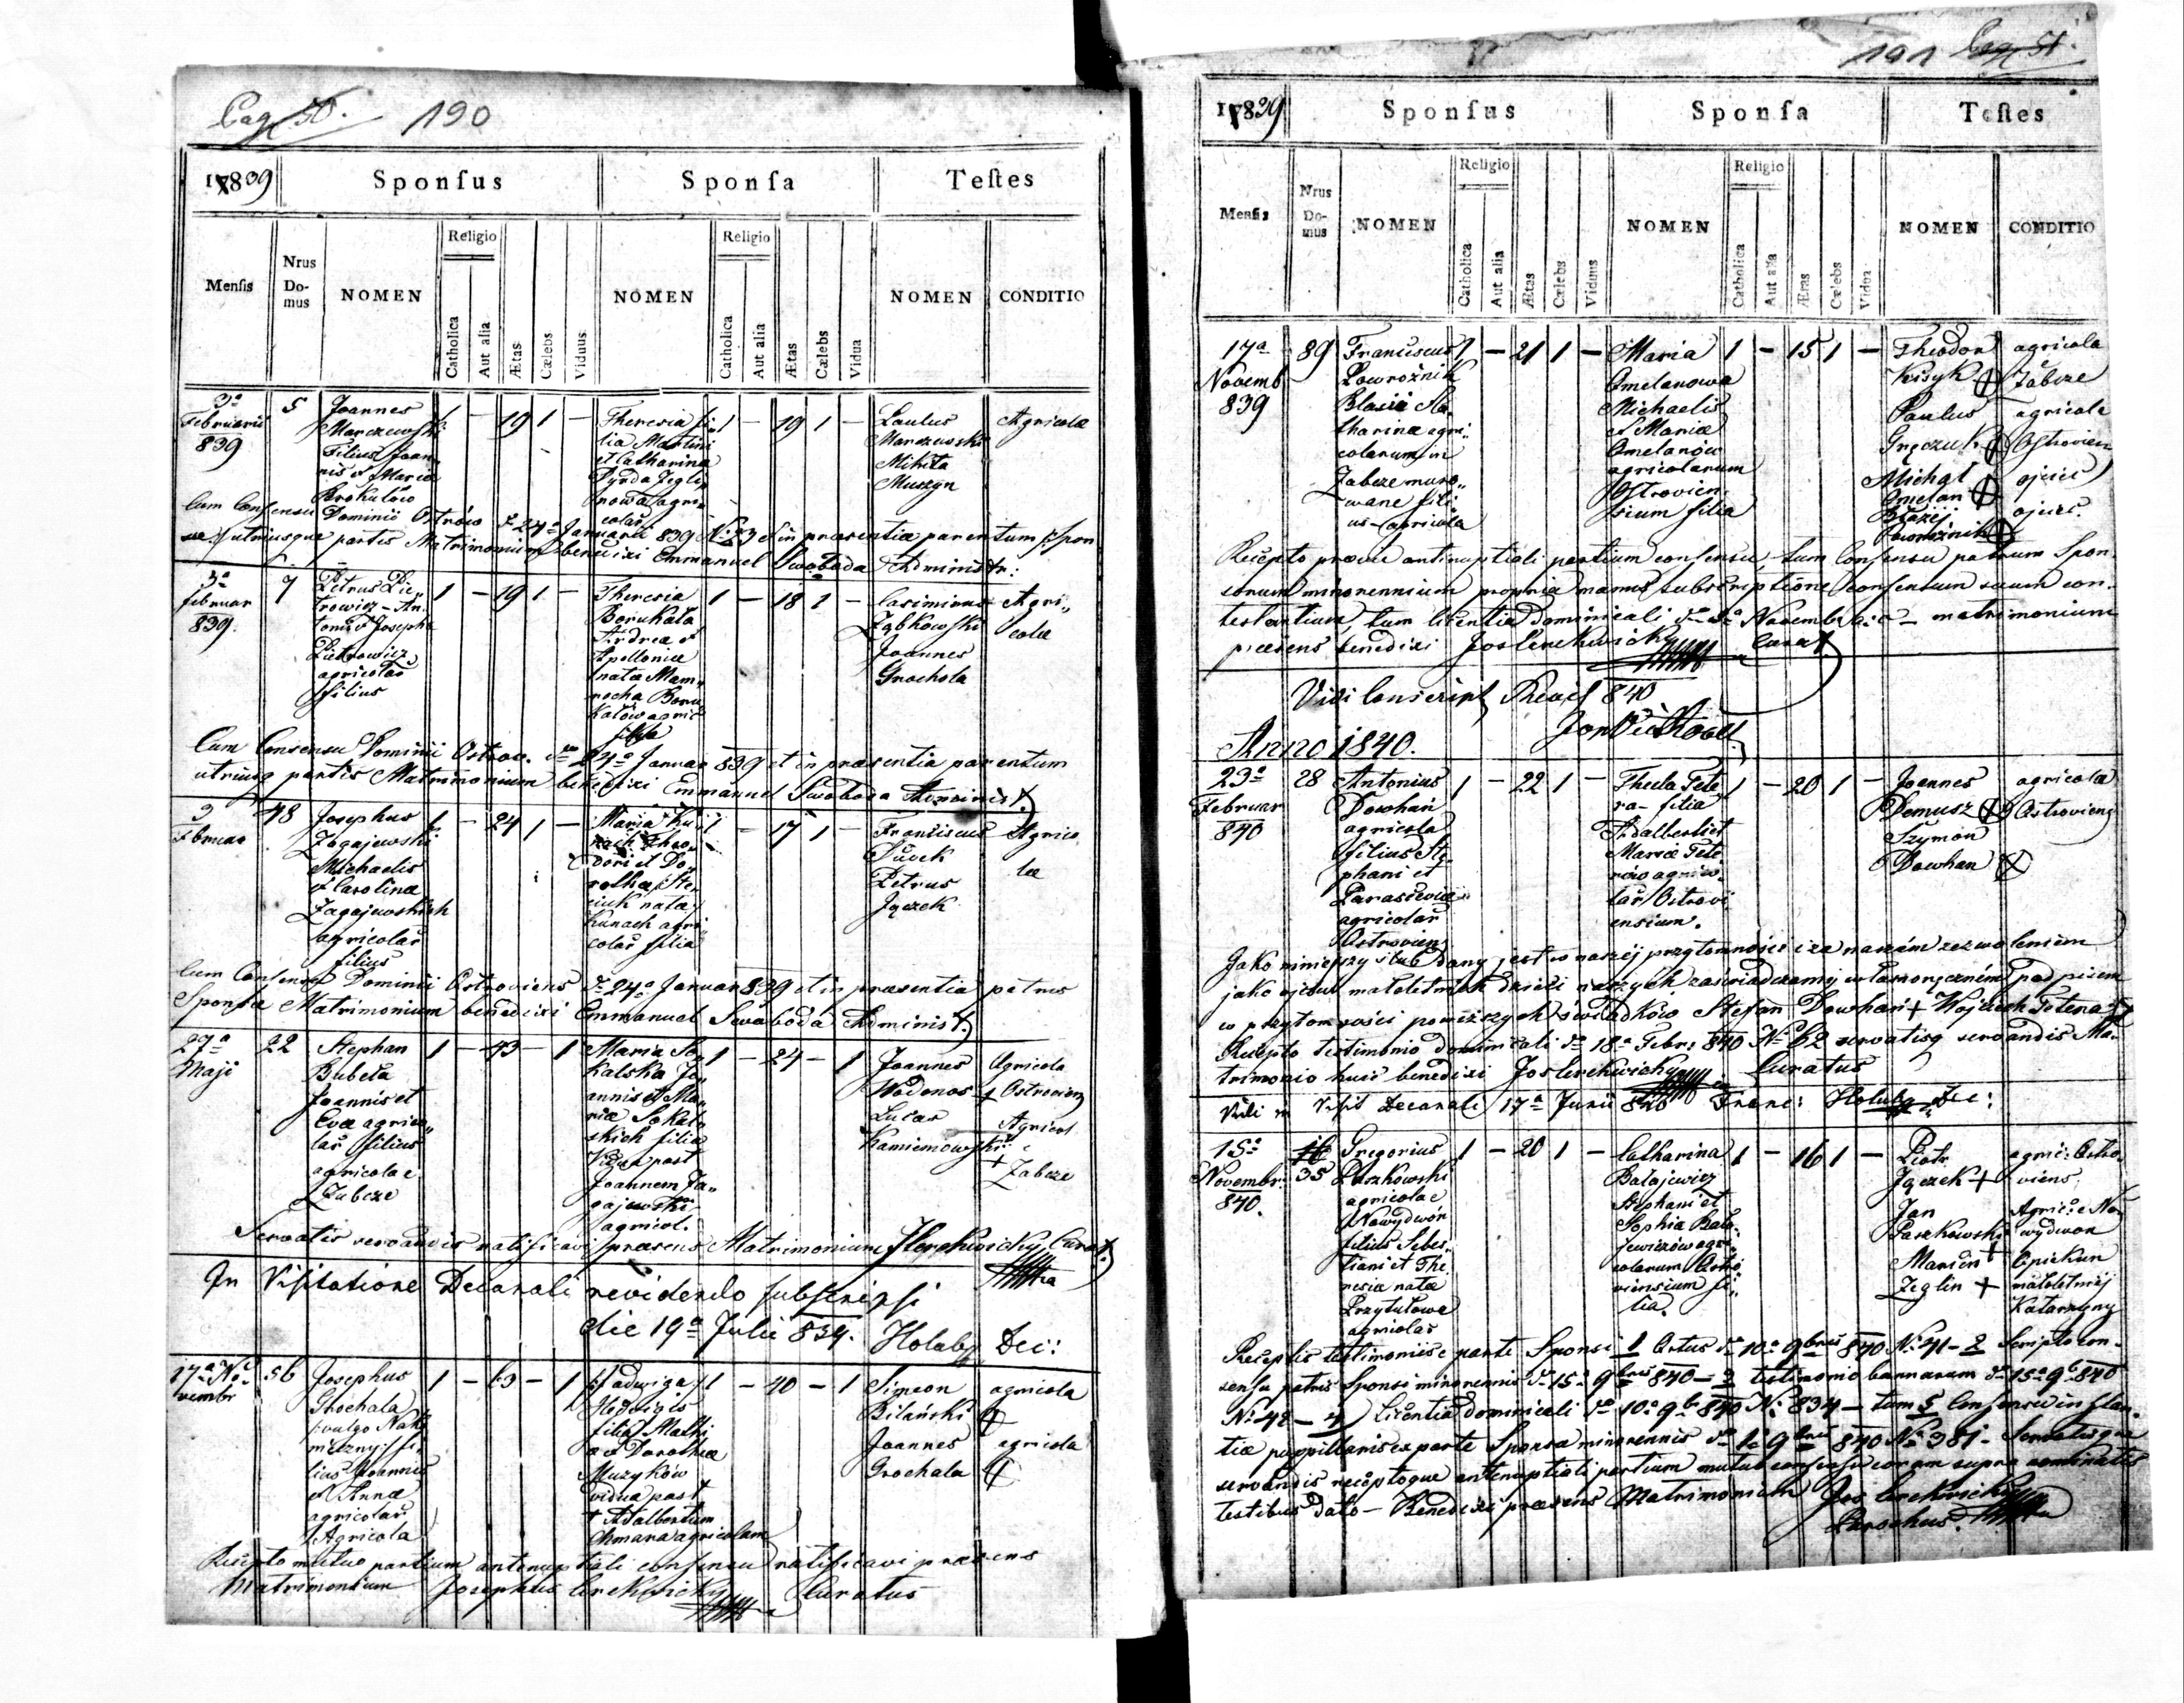 Pag. 50. 190
1839
Sponſus
Sponſa
Teſtes
Menſis
Nrus Do-mus
NOMEN
Religio
Catholica
Aut alia
Ætas
Cælebs
Viduus
NOMEN
Religio
Catholica
Aut alia
Ætas
Cælebs
Vidua
NOMEN
CONDITIO
3a Februarii 839
5
Joannes
Marczewski
Filius Joan-
nis et Maria
1 — 19 1 —
Theresia fi-
lia Martini
et Catharina
1 — 19 1 —
Paulus
Marczewski
Mikita
Muszyn
Agricola
Cum Consensu Dominii Ostrów de 24a Januarii 839 No 23 et in præsentia parentum Spon
sæ utriusque partis Matrimonium benedixi Emmanuel Swoboda Administr:
3a
februar
839.
7
Petrus Pie-
trowicz - An-
tonii et Josepha
Pietrowicz
agricolar
filius
1 — 19 1 —
Theresia
Borukala
Andrea et
Apollonia
nata Mam-
rocha Boru-
kałów agric
filia
1 — 18 1 —
Casimirus
Ząbkowski
Joannes
Grochola
Agri-
colæ
Cum Consensu Dominii Ostrov. de 24a Januar 839 et in præsentia parentum
utriusq partis Matrimonium benedixi Emmanuel Swoboda Administ.
3
Februar
48
Josephus
Zagajewski
Michaelis
et Carolina
Zagajewskich
agricolar
filius
1 — 24 1 —
Maria Ku-
nach Theo-
dori et Do-
rothea Ste-
ciuk nata
Kunach agri-
colar filia
1 — 17 1 —
Franciscus
Petrus
Jączek
Agrico
læ
Cum Consensu Dominii Ostroviens de 24a Januar 839 et in præsentia patris
Sponsæ Matrimonium benedixi Emmanuel Swoboda Administ.
27a
Maji
22
Stephan
Bubeła
Joannis et
Eva agrico-
lar filius
agricola e
Zabcze
1 — 43 — 1
Maria So-
kalska Jo-
annis et Ma-
ria Sokal-
skich filia
Vidua post
Joannem Za-
gajewski
agricol.
1 — 24 — 1
Joannes
Wodonos +
Lucas
Kamieniowski
+
Agricola
Ostroviens
Agricol
e
Zabcze
Servatis servandis ratificavi præsens Matrimonium JLerchwicky Curat.
In Visitatione Decanali revidendo subscripsi
die 19a Julii 839. Holuby Dec:
17a No-
vembr
56
Josephus
Grochala
vulgo Nak
fi-
lius Joannis
et Anna
agricolar
Agricola
1 — — 1
Jadwiga
Hedwigis
filia Mathi
a et Dorothea
Muzyków
vidua post
+ Adalbertum
Chmara agricolam
1 — 40 — 1
Simeon
Bilański
Joannes
Grochala
agricola
agricola
Recepto mutuo partium antenuptiali consensu ratificavi præsens
Matrimonium Josephus Lerchwicky Curatus
191 Pag. 51.
1839
Sponſus
Sponſa
Teſtes
Menſis
Nrus Do-mus
NOMEN
Religio
Catholica
Aut alia
Ætas
Cælebs
Viduus
NOMEN
Religio
Catholica
Aut alia
Ætas
Cælebs
Vidua
NOMEN
CONDITIO
17a
Novemb
839
89
Franciscus
Powroźnik
Blasii
tharina agri-
colarum in
Zabcze muro-
wane fili-
us - agricola
1 — 21 1 —
Maria
Omelanowa
Michaelis
et Maria
Omelanów
agricolarum
Ostrovien-
sium filia
1 — 15 1 —
Theodor
Kisyk
Paulus
Michał
Omelan
Błażej
Powroźnik
agricola
Zabcze
agricola
Ostrovien
ojciec
ojciec.
Recepto præevie antinuptiali partium consensu, tum Consensu patrum Spon-
sorum minorennium propria manus subscriptione consensum suum con-
testantium, tum licentia Dominicali Novemb. a.c. — matrimonium
præsens benedixi Jos Lerchwicky Curat
Vidi Conscript Revis 840
Anno 1840.
23a
Februar
840
28
Antonius
Dowhań
agricola
filius Ste-
phani et
Parascevia
agricolar
Ostroviens
1 — 22 1 —
Thecla Tete
ra - filia
Adalberti et
Maria Tete
rów agrico-
lar Ostrovi
ensium.
1 — 20 1 —
Joannes
Demusz
Szymon
Dowhan
agricola
Ostroviens
Jako niniejszy ślub dany jest w naszéj przytomności i za naszém zezwoleniem
jako ojców małoletnich dzieci naszych zaświadczamy własnoręczném podpisem
w przytomności poniższych świadków Stefan Dowhań + Wojciech Tetera +
Recepto testimonio dominicali de 18a Febr: 840 No 62 servatisq servandis Ma-
trimonio huic benedixi Jos Lerchwicky Curatus
Vidi in Visit Decanali 17a Junii 840 Franc: Holuby Dec:
15a
Novembr.
840.
35
Gregorius
Paszkowski
agricola e
Nowydwór
filius Sebes-
tiani et The-
resia nata
Przytułowa
agricolar
1 — 20 1 —
Catharina
Bałajewicz
Stephani et
Sophia Bała-
jewiczów agri-
colarum Ostro-
viensium fi-
lia.
1 — 16 1 —
Piotr
Jączek +
Jan
Paszkowski
+
Marcin
Zeglin +
agric: Ostro-
viens
Agric: e No-
wydwor
Opiekun
małoletniej
Katarzyny
Receptis testimoniis e parte Sponsi 1 Ortus de 10a 9bris 840 No 41 - 2 Scripto con-
sensu patris Sponsi minorennis de 15a 9bris 840 — 3 testimonio bannorum de 15a 9b 840
No 42 — 4 Licentia dominicali de 10a 9b 840 No 834 — tum 5 Consensu in stan-
tiæ puppillaris ex parte Sponsa minorennis de 9bris 840 No 381 - Servatisque
servandis receptoque antenuptiali partium mutuo consensu coram supra nominatis
testibus dato — Benedixi præsens Matrimonium Jos Lerchwicky
Parochus.